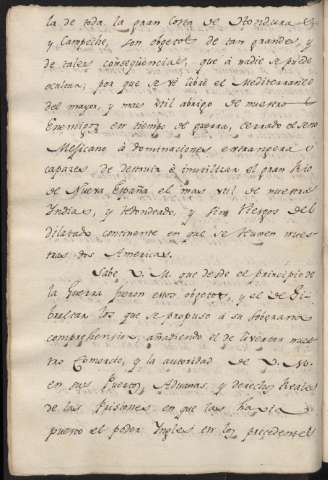 la de toda la gran costa de Honduras,
y Campeche, son obgetos de tan grandes, y
de tales consequiencias, que à nadie se puede
ocultar, por que se vè libre el Mediterraneo
del mayor, y mas util abrigo de nuestros
Enemigos en tiempo de guerra, cerrado el seno
Mexicano à dominaciones extrangeras
capaces de destruir è inutilizar el gran Rio
de Nueva España el mas util de nuestras
Yndias, y redondeado, y sin riesgos del
dilatado continente en que se reunen nues-
tras dos Americas.
Sabe V. M. que desde el principio de
la Guerra fueron estos obgetos, y el de Gi-
braltar los que se propuso à su soberana
comprehension, añadiendo el de livertar nues-
tro Comercio, y la autoridad de V. M.
en sus Puertos, Aduanas, y derechos Reales
de las Prisiones en que las havia
puesto el poder Yngles en los precedentes